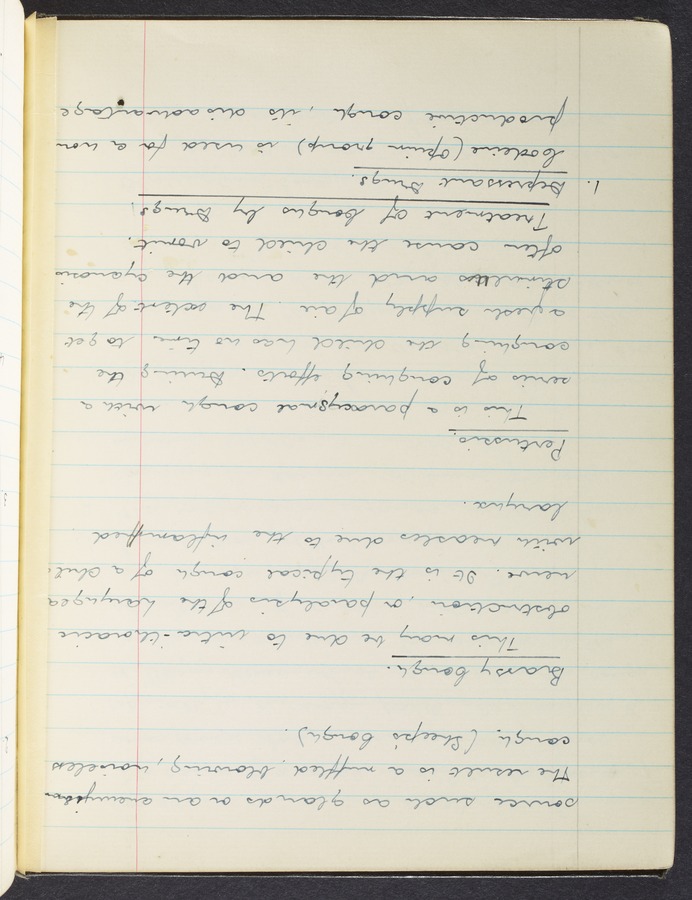 source such as glands or an aneurysm
The result is a muffled, blowing, noiseless
cough. (Sheep's Cough).
Brassy Cough.
This may be due to intra-thoracic
obstruction, or paralysis of the laryngea
nerve. It is the typical cough of a child
with measles due to the inflammed
larynx.
Pertussis.
This is a paroxysmal cough with a
series of coughing efforts. During the
coughing the child has no time to get
a fresh supply of air. The extent of the
and the cyanosis
often cause the child to vomit.
Treatment of Coughs by Drugs.
1. Depressant Drugs.
Codeine (Opium group) is used for a non
productive cough, it's disadvantage